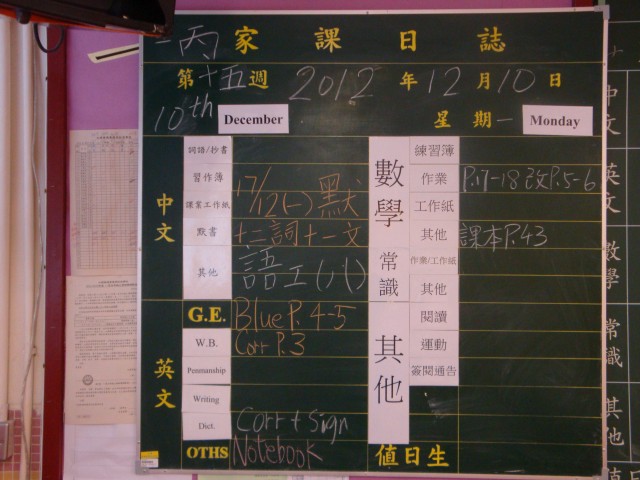 一丙 家課日誌
第十五週 2012年12月10日
10th December 星期一 Monday
中文
詞語/抄書
習作簿
課業工作紙
默書
其他
17/12(一)默
十三詞十一文
語工(八)
英文
G.E. Blue P. 4-5
W.B. Corr P.3
Penmanship
Writing
Dict. Corr + Sign
OTHS Notebook
數學
練習簿
作業 P.17-18改P.5-6
工作紙
其他 課本P.43
常識
作業/工作紙
其他
其他
閱讀
運動
簽閱通告
值日生
中文
英文
數學
常識
其他
值日